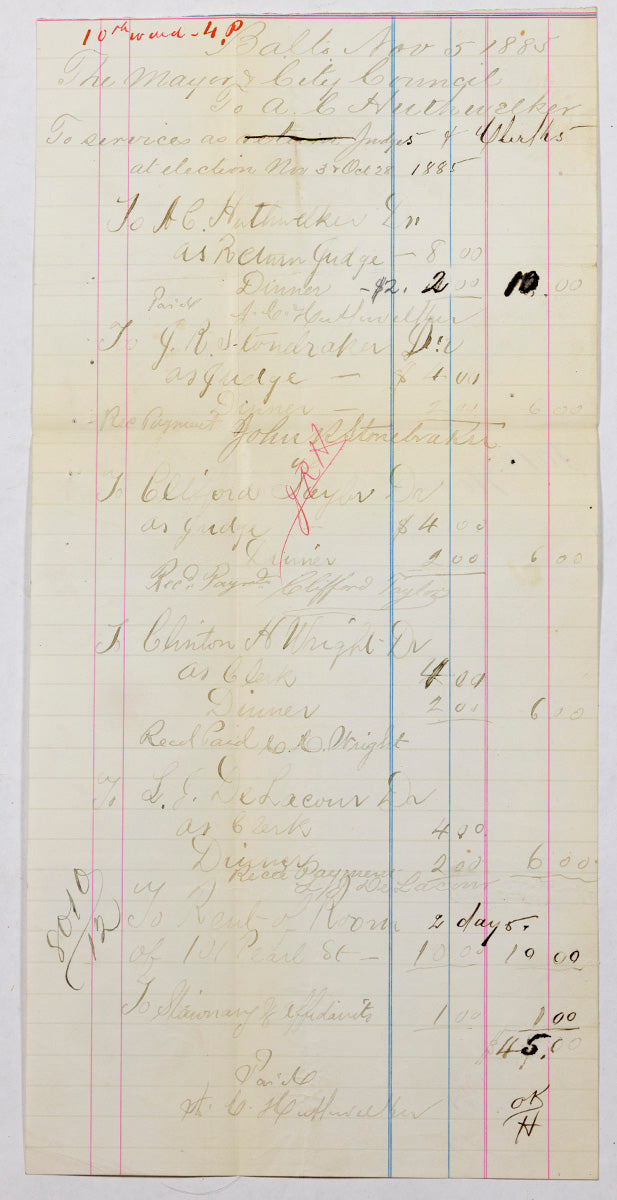 10th ward - 4. P
Balto Nov 5 1885
The Mayor & City Council
To A. C. Huthwelker
To services as Judges & Clerks
at election Nov 3 & Oct 28 1885
To A C. Huthwelker Dr
as Return Judge - 8 00
Dinner - $2. 2 00 10.00
Paid A. C. Huthwelker
To J. R. Stondraker Dr
as Judge - $ 4 00
Dinner - 2 00 6 00
Rec Payment John R Stonebraker
J R H
To Clifford Taylor Dr
as Judge $ 4 00
Dinner 2 00 6 00
Recd. Paymt. Clifford Taylor
To Clinton H Wright Dr
as Clerk 4 00
Dinner 2 00 6 00
Recd Paid C. H. Wright
To L. J. DeLacour Dr
as Clerk 4 00
Dinner 2 00 6 00
Recd Payment L J DeLacour
8010/12
To Rent of Room 2 days.
of Pearl St - 10 00 10 00
To Staionary & affidavits 1 00 1 00
$45.00
Paid
A. C. Huthwelker
OK
H